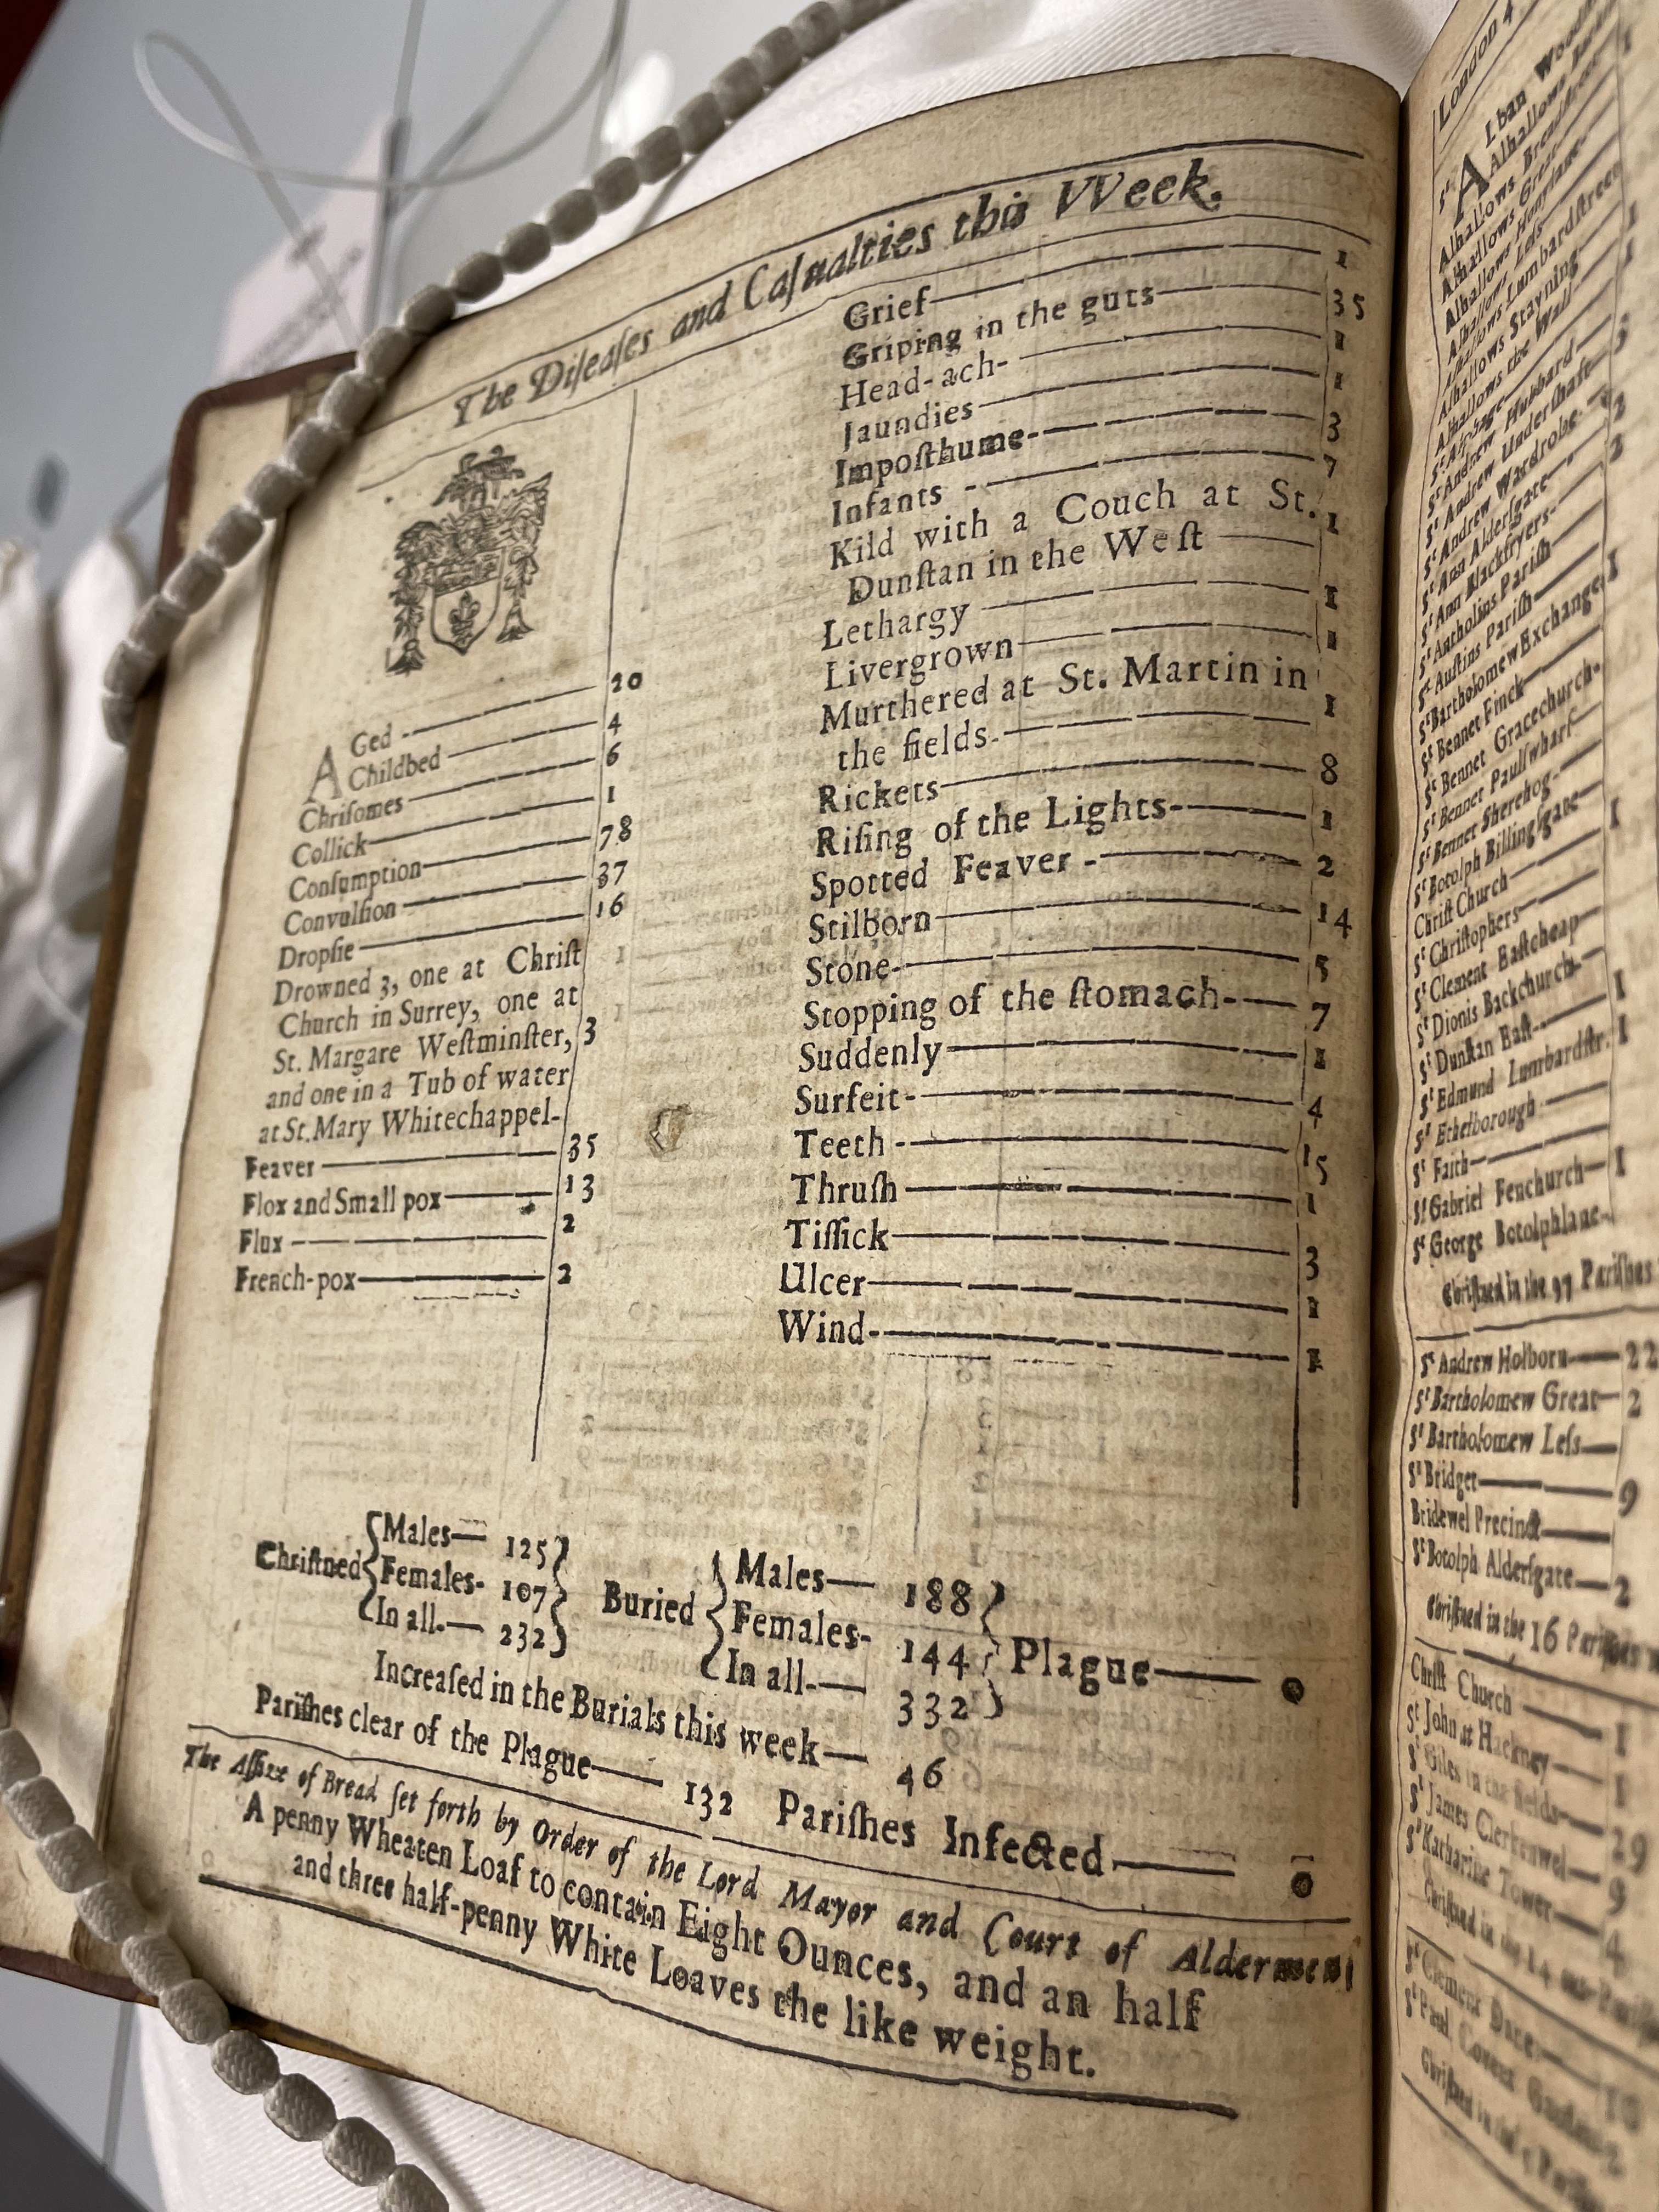 The Diſeaſes and Caſualties this VVeek.
AGed - 20
Childbed 4
Chriſomes 6
Collick 1
Conſumption 78
Convulſion 37
Dropſie 16
Drowned 3, one at Chriſt
Church in Surrey, one at
St. Margare Weſtminſter, 3
and one in a Tub of water
at St. Mary Whitechappel-
Feaver 35
Flox and Small pox 13
Flux 2
French-pox 2
Grief 1
Griping in the guts 35
Head-ach- 1
Jaundies 1
Impoſthume- 3
Infants - 7
Kild with a Couch at St. 1
Dunſtan in the Weſt
Lethargy 1
Livergrown 1
Murthered at St. Martin in
the fields- 1
Rickets 8
Riſing of the Lights- 1
Spotted Feaver - 2
Stilborn 14
Stone- 5
Stopping of the ſtomach- 7
Suddenly 1
Surfeit- 4
Teeth - 15
Thruſh 1
Tiſſick 3
Ulcer 1
Wind- 1
Chriſtned Males 125
Females- 107
In all. 232
Buried Males 188
Females- 144
In all- 332
Plague 0
Increaſed in the Burials this week 46
Pariſhes clear of the Plague 132 Pariſhes Infected 0
The Aſſize of Bread ſet forth by Order of the Lord Mayor and Court of Aldermen
A penny Wheaten Loaf to contain Eight Ounces, and an half
and three half-penny White Loaves the like weight.
London 4
Alhallows Great
Alhallows Honylane-
Alhallows Leſs
Alhallows Lumbardſtreet
Alhallows Stayning
Alhallows the Wall
St Andrew Hubbard
St Andrew Underſhaft
St Andrew Wardrobe-
St Ann Alderſgate
St Ann Blackfryers-
St Antholins Pariſh
St Auſtins Pariſh
St Bartholomew Exchange
St Bennet Finck
St Bennet Gracechurch-
St Bennet Paulſwharf
St Bennet Sherehog-
St Botolph Billingſgate
Chriſt Church
St Chriſtophers
St Clement Eaſtcheap
St Dionis Backchurch 1
St Dunſtan Eaſt 1
St Edmund Lumbardſtr.
St Ethelborough
St Faith
St Gabriel Fenchurch 1
St George Botolphlane
Chriſtned in the 97 Pariſhes
St Andrew Holborn 22
St Bartholomew Great 2
St Bartholomew Leſs
St Bridget 9
Bridewel Precinct
St Botolph Alderſgate 2
Chriſtned in the 16 Pariſhes
Chriſt Church 1
St John at Hackney 1
St Giles in the fields 29
St James Clerkenwel 9
St Katharine Tower 4
St Clement Danes
St Paul Covent Garden